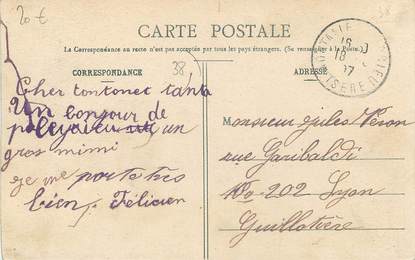 20 €
38
CARTE POSTALE
La Correspondance au recto n'est pas acceptée par tous les pays étrangers. (Se renseigner à la Poste.)
CORRESPONDANCE
38
ADRESSE
Cher tontonet tanta
Un bonjour de
un
gros mimi
je me porte tres
bien. Félicien
Monsieur jules Péron
rue Garibaldi
180-202 Lyon
Guillotière
18
07
ISERE